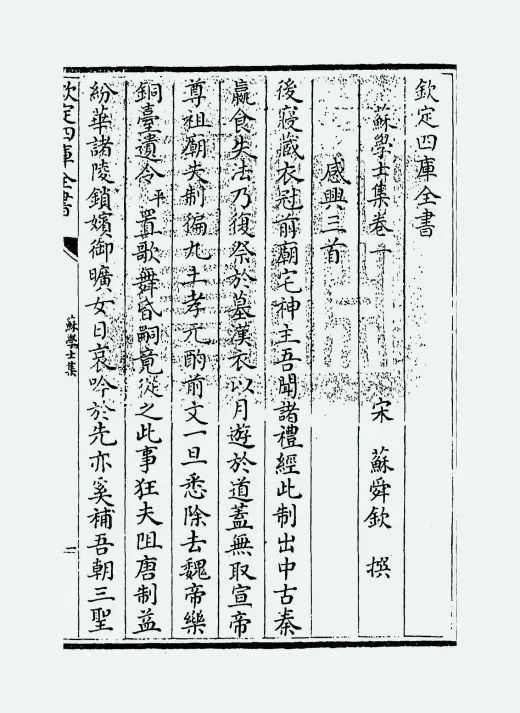 欽定四庫全書
蘇學士集卷一
宋 蘇舜欽 撰
感興三首
後寢藏衣冠前廟宅神主吾聞諸禮經此制出中古秦
嬴食失法乃復祭於墓漢衣以月遊於道蓋無取宣帝
尊祖廟失制徧九土孝元酌前文一旦悉除去魏帝樂
銅臺遺令平置歌舞昏嗣竟從之此事狂夫阻唐制益
紛華諸陵鎖嬪御曠女日哀吟於先亦奚補吾朝三聖
欽定四庫全書
蘇學士集
一